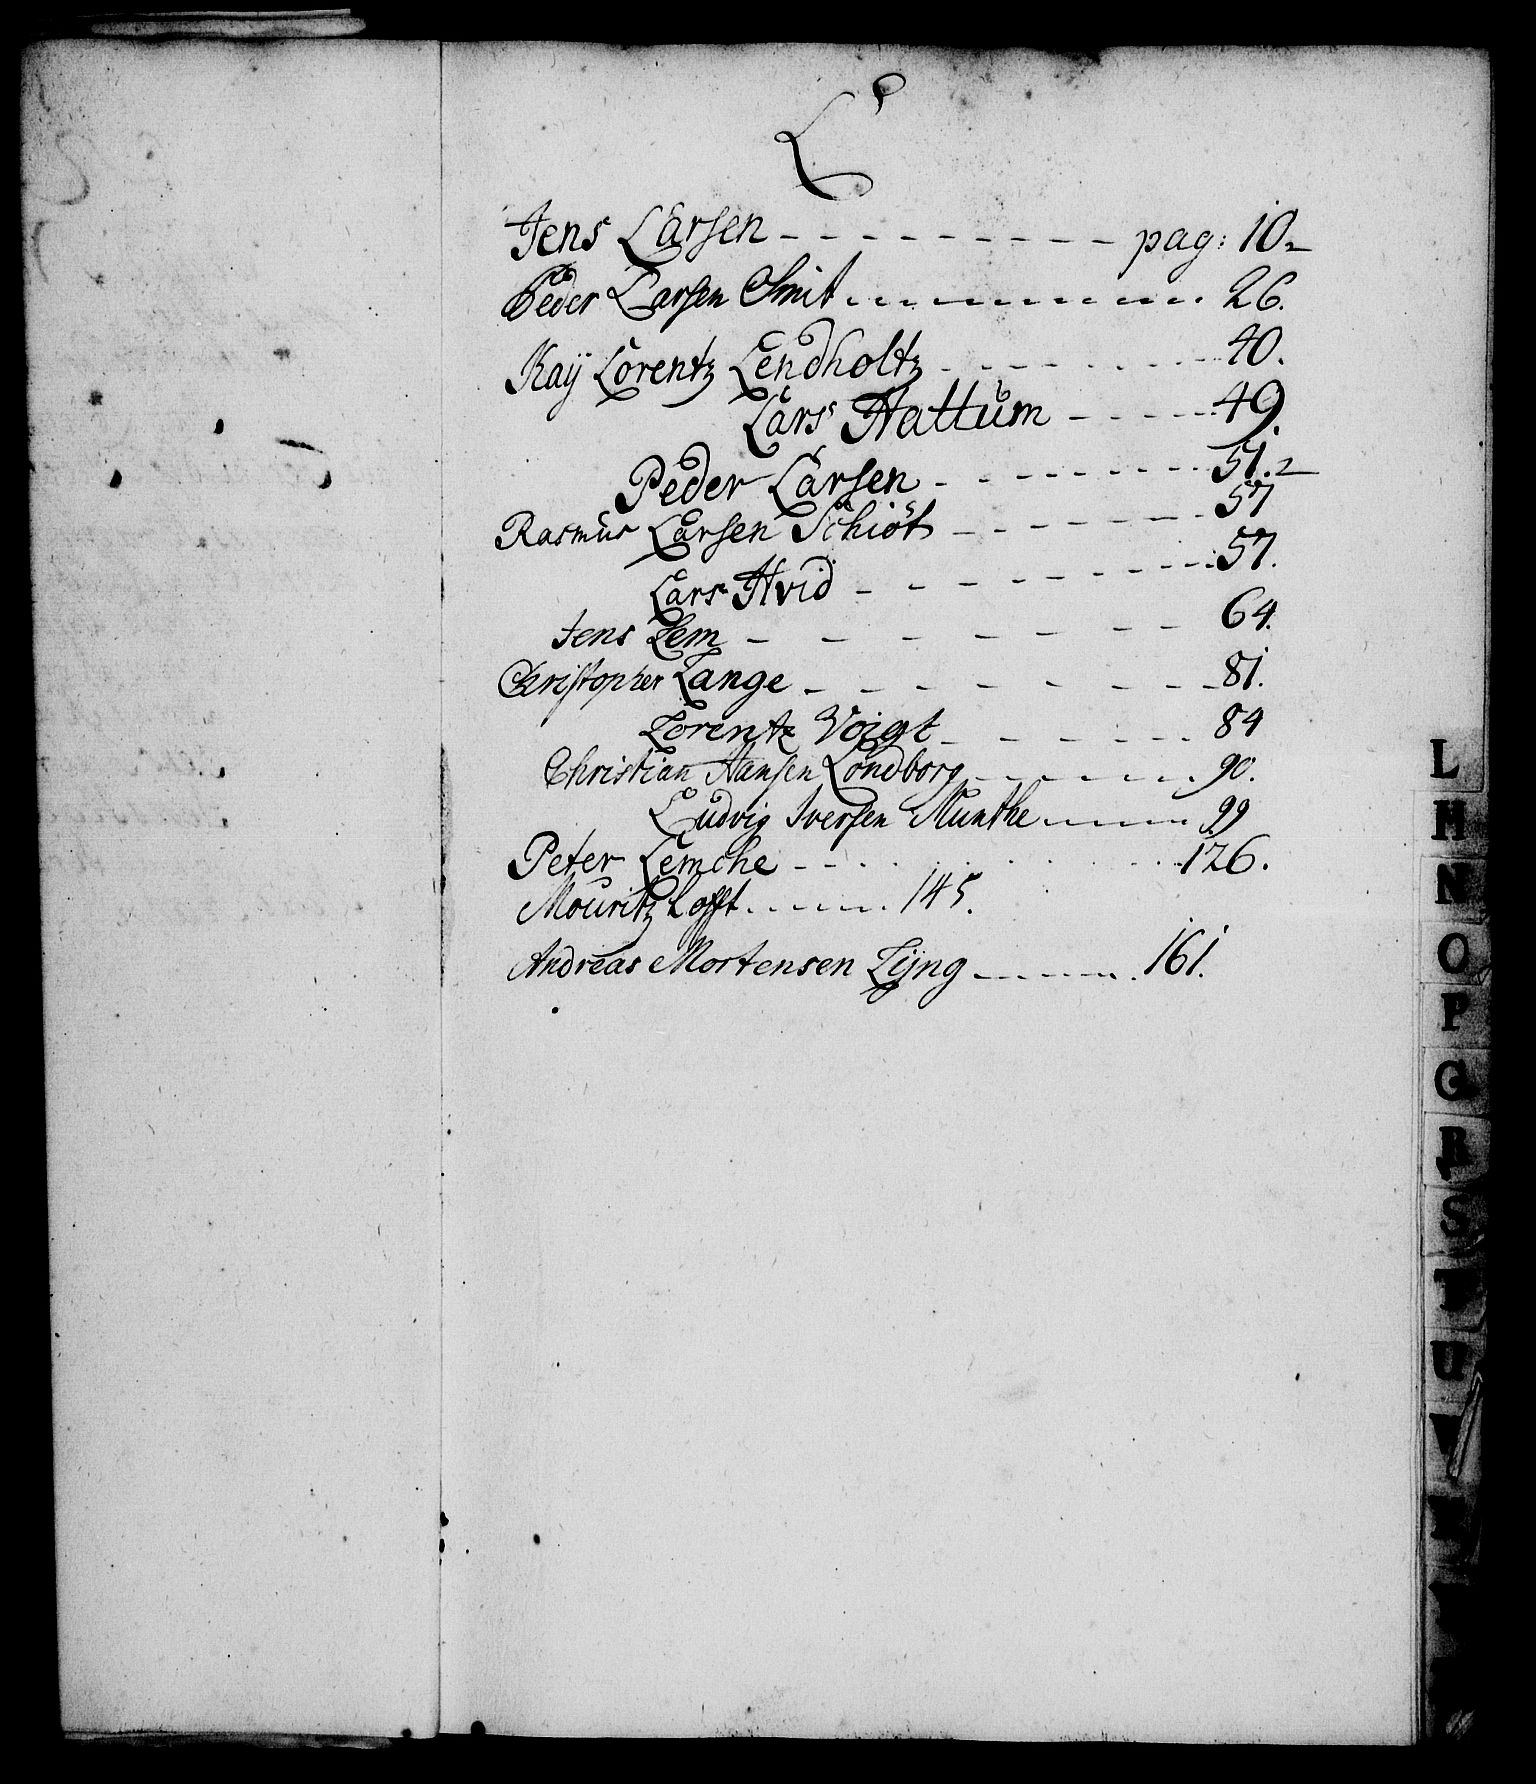 L
Jens Larsen - - - - - - - - - pag: 10.
Peder Larsen Smit - - - - - - - - 26.
Kaÿ Lorentz Lendholtz - - - - - - 40.
Lars Hattum - - - - - 49.
Peder Larsen - - - - - - - 51.
Rasmus Larsen Schiøt - - - - - - 57
Lars Hvid - - - - - - - - 57.
Jens Lem - - - - - - - 64.
Christopher Lange - - - - - - - - 81.
Lorentz Voigt - - - - - 84
Christian Hansen Londborg - - - - - 90.
Ludvig Iversen Munthe - - - - 99
Peter Lemche - - - - - - - 126.
Mouritz Lofft - - - - 145.
Andreas Mortensen Lÿng - - - - 161.
L
M
N
O
P
Q
R
S
T
U
V